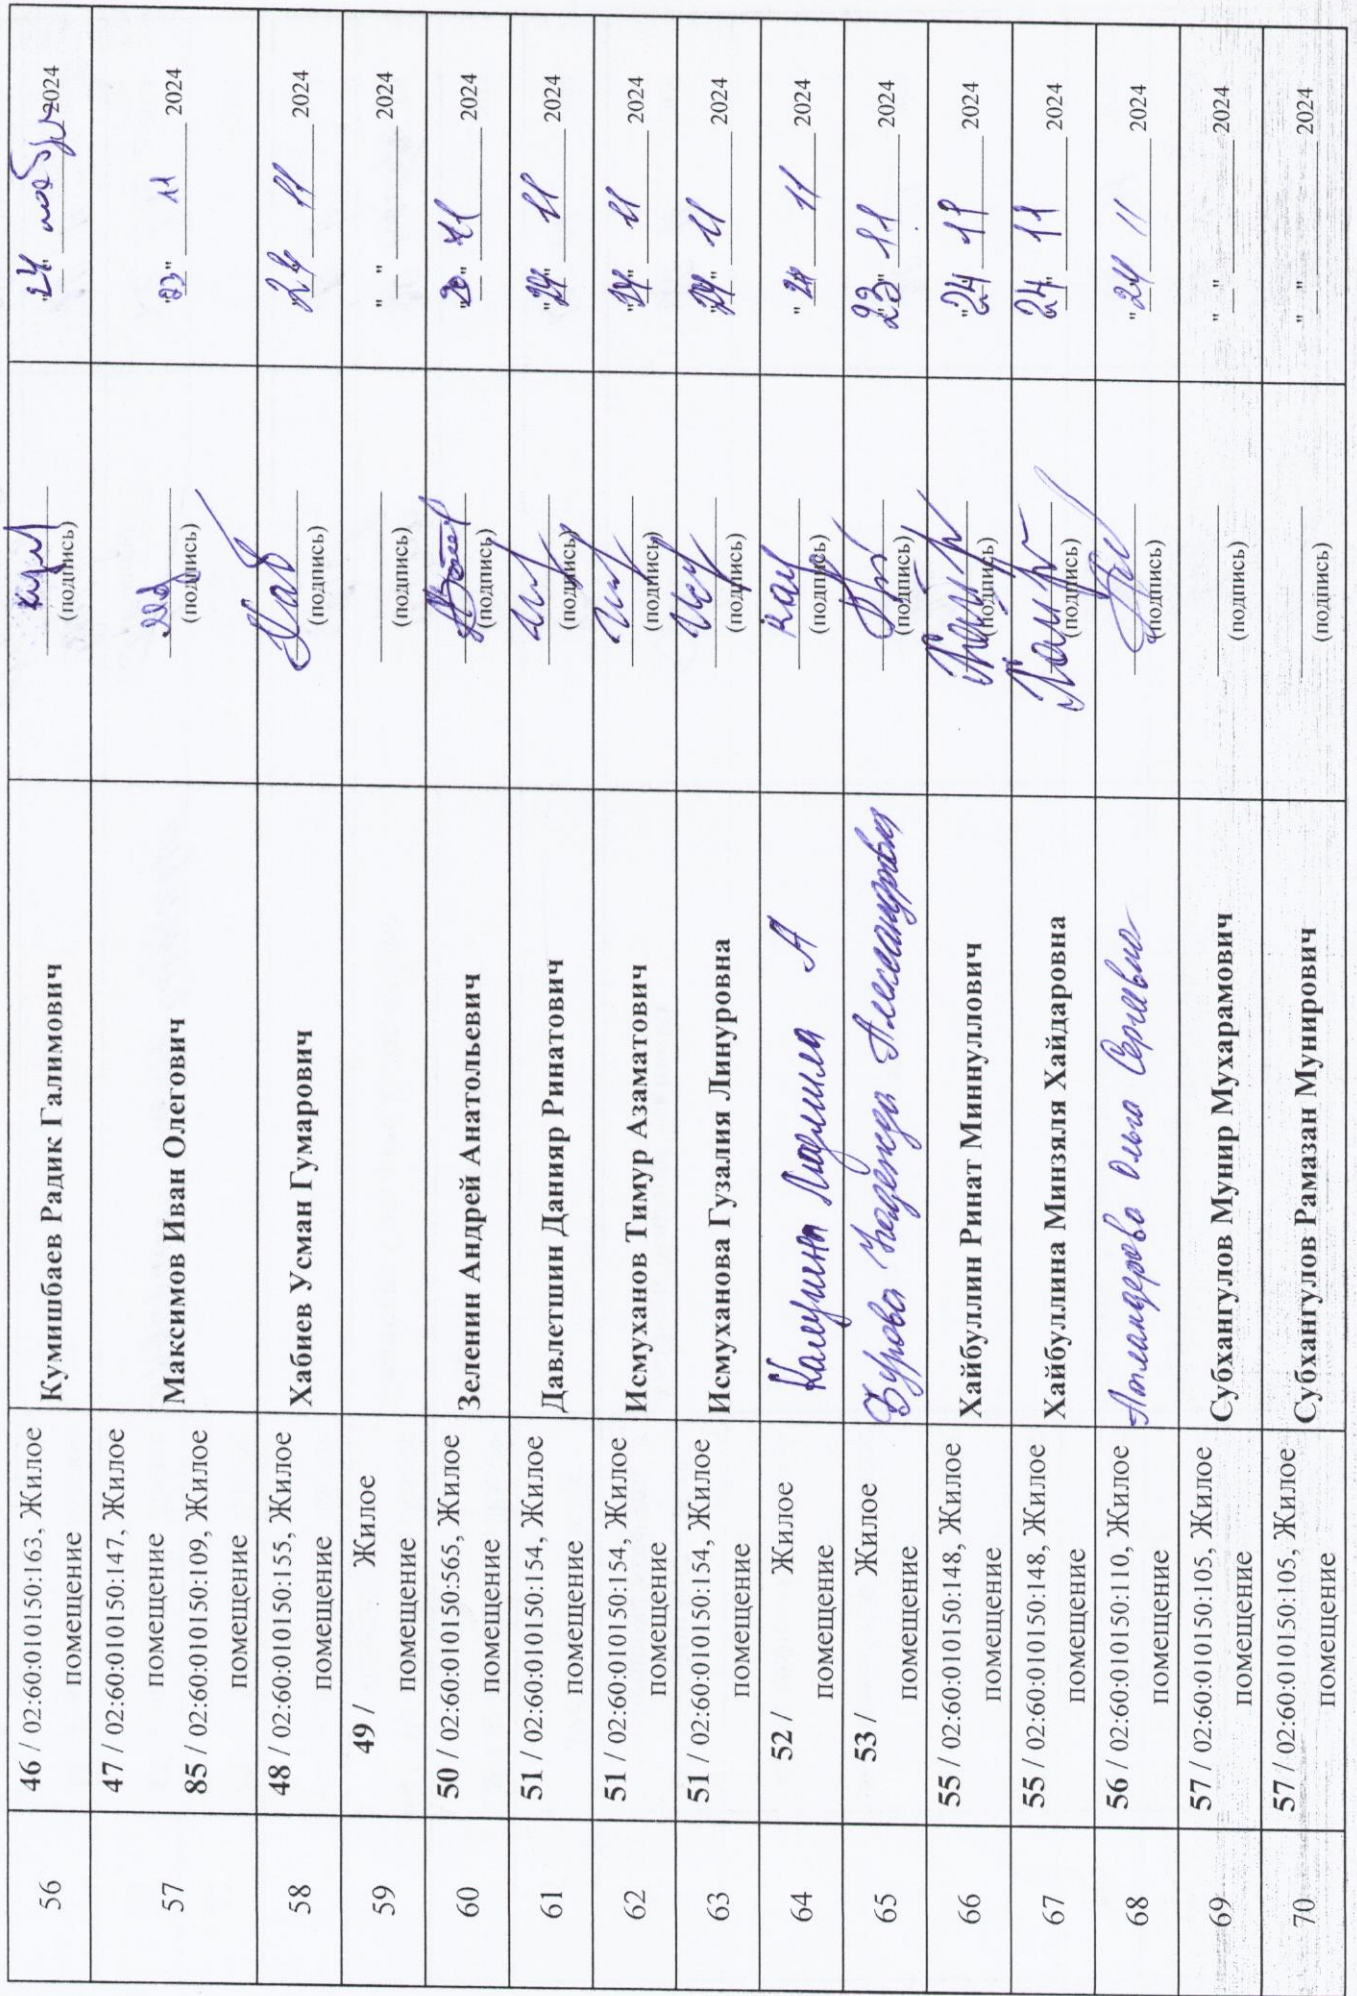 56
46 / 02:60:010150:163, Жилое
помещение
Кумишбаев Радик Галимович
(подпись)
"24" ноября 2024
57
47 / 02:60:010150:147, Жилое
помещение
85 / 02:60:010150:109, Жилое
помещение
Максимов Иван Олегович
(подпись)
"23" 11 2024
58
48 / 02:60:010150:155, Жилое
помещение
Хабиев Усман Гумарович
Хаб
(подпись)
24 11 2024
59
49 / Жилое
помещение
(подпись)
" " 2024
60
50 / 02:60:010150:565, Жилое
помещение
Зеленин Андрей Анатольевич
(подпись)
"20" 11 2024
61
51 / 02:60:010150:154, Жилое
помещение
Давлетшин Данияр Ринатович
(подпись)
"24" 11 2024
62
51 / 02:60:010150:154, Жилое
помещение
Исмуханов Тимур Азаматович
(подпись)
"24" 11 2024
63
51 / 02:60:010150:154, Жилое
помещение
Исмуханова Гузалия Линуровна
(подпись)
"24" 11 2024
64
52 / Жилое
помещение
Людмила А
(подпись)
"24 11 2024
65
53 / Жилое
помещение
Бурова Надежда Александровна
(подпись)
23" 11 2024
66
55 / 02:60:010150:148, Жилое
помещение
Хайбуллин Ринат Миннуллович
(подпись)
"24 11 2024
67
55 / 02:60:010150:148, Жилое
помещение
Хайбуллина Минзяля Хайдаровна
(подпись)
24" 11 2024
68
56 / 02:60:010150:110, Жилое
помещение
Ольга Сергеевна
(подпись)
"24 11 2024
69
57 / 02:60:010150:105, Жилое
помещение
Субхангулов Мунир Мухарамович
(подпись)
" " 2024
70
57 / 02:60:010150:105, Жилое
помещение
Субхангулов Рамазан Мунирович
(подпись)
" " 2024